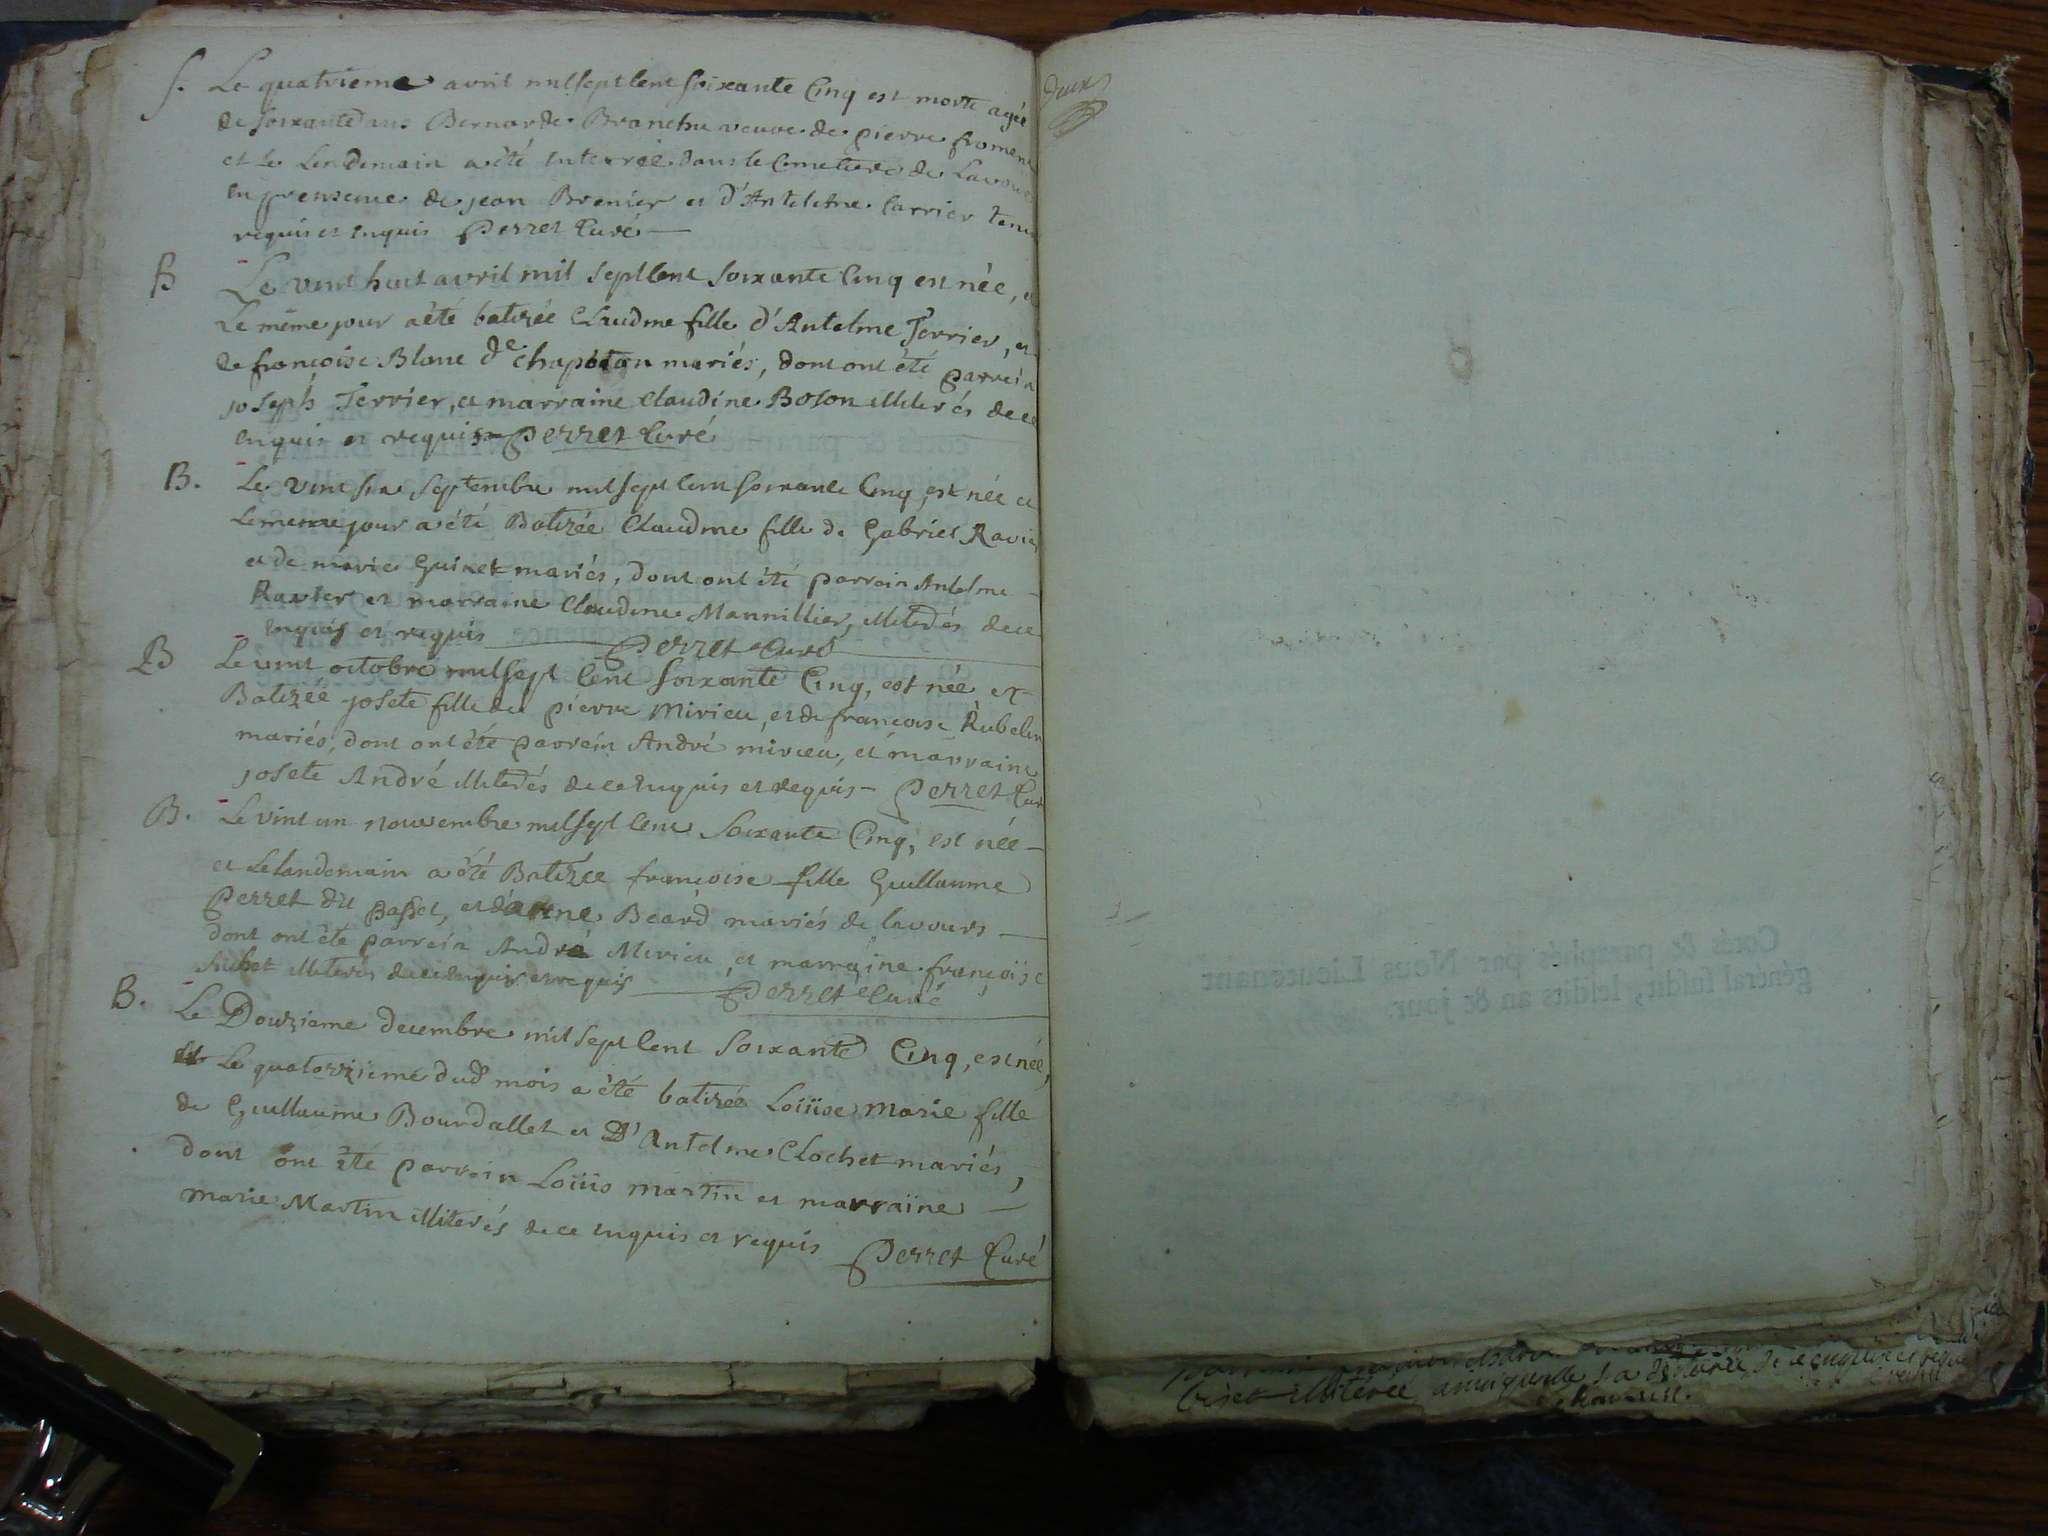 S. Le quatrieme avril mil sept cent soixante cinq est morte agée
de soixante ans Bernarde Branche veuve de pierre froment
et le lendemain a été enterrée dans le Cimetiere de Lavours
en presence de jean Brenier et d'Antelme Carrier
requis et enquis Perret Curé
B Le vint huit avril mil sept cent soixante cinq est née, et
Le même jour a été batizée Claudine fille d'Antelme Terrier, et
de françoise Blanc de chapotan mariés, dont ont été parrein
joseph Terrier, et marraine Claudine Boson illiterés de ce
enquis et requis Perret Curé
B. Le vint six Septembre mil sept cent soixante Cinq est née et
le meme jour a été Batizée Claudine fille de Gabriel Ravier
et de marie Guinet mariés, dont ont été parrein Antelme
Ravier et marraine Claudine Mannillier, illiterés de ce
enquis et requis Perret Curé
B Le vint octobre mil sept cent soixante Cinq, est née et
Batizée josete fille de pierre Mirieu, et de francoise Rubelin
mariés, dont ont été parrein André mirieu, et marraine
josete André illiterés de ce enquis et requis - Perret Curé
B. Le vint un nouvembre mil sept cent Soixante Cinq, est née -
et le landemain a été Batizée françoise fille Guillaume
Perret dit passet, et d'anne Beard mariés de lavours
dont ont été parrein André Mirieu, et marraine françoise
illiterés de ce enquis et requis Perret Curé
B. Le Douzieme decembre mil sept cent Soixante Cinq, est née,
et Le quatorzieme dud mois a été batizée Loüise marie fille
de Guillaume Bourdallet et D'Antelme Clochet mariés,
dont ont été parrein Loüis martin et marraine
marie Martin illiterés de ce enquis et requis
Perret Curé
deux
Cotés & paraphés par Nous Lieutenant
général susdit, lesdits an & jour.
illiterée